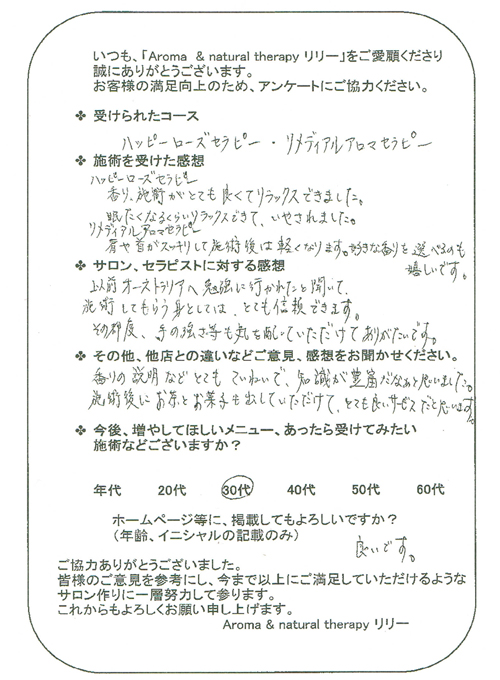 いつも、「Aroma & natural therapy リリー」をご愛顧くださり
誠にありがとうございます。
お客様の満足向上のため、アンケートにご協力ください。
❖ 受けられたコース
ハッピーローズセラピー・リメディアルアロマセラピー
❖ 施術を受けた感想
ハッピーローズセラピー
香り、施術がとても良くてリラックスできました。
眠たくなるくらいリラックスできて、いやされました。
リメディアルアロマセラピー
肩や首がスッキリして施術後は軽くなります。好きな香りを選べるのも
嬉しいです。
❖ サロン、セラピストに対する感想
以前オーストラリアへ勉強に行かれたと聞いて、
施術してもらう身としては、とても信頼できます。
その都度、手の強さ等も気を配っていただけてありがたいです。
❖ その他、他店との違いなどご意見、感想をお聞かせください。
香りの説明などとてもていねいで、知識が豊富だなぁと思いました。
施術後にお茶とお菓子も出していただけて、とても良いサービスだと思います。
❖ 今後、増やしてほしいメニュー、あったら受けてみたい
施術などございますか？
年代 20代 30代 40代 50代 60代
ホームページ等に、掲載してもよろしいですか？
（年齢、イニシャルの記載のみ）
良いです。
ご協力ありがとうございました。
皆様のご意見を参考にし、今まで以上にご満足していただけるような
サロン作りに一層努力して参ります。
これからもよろしくお願い申し上げます。
Aroma & natural therapy リリー